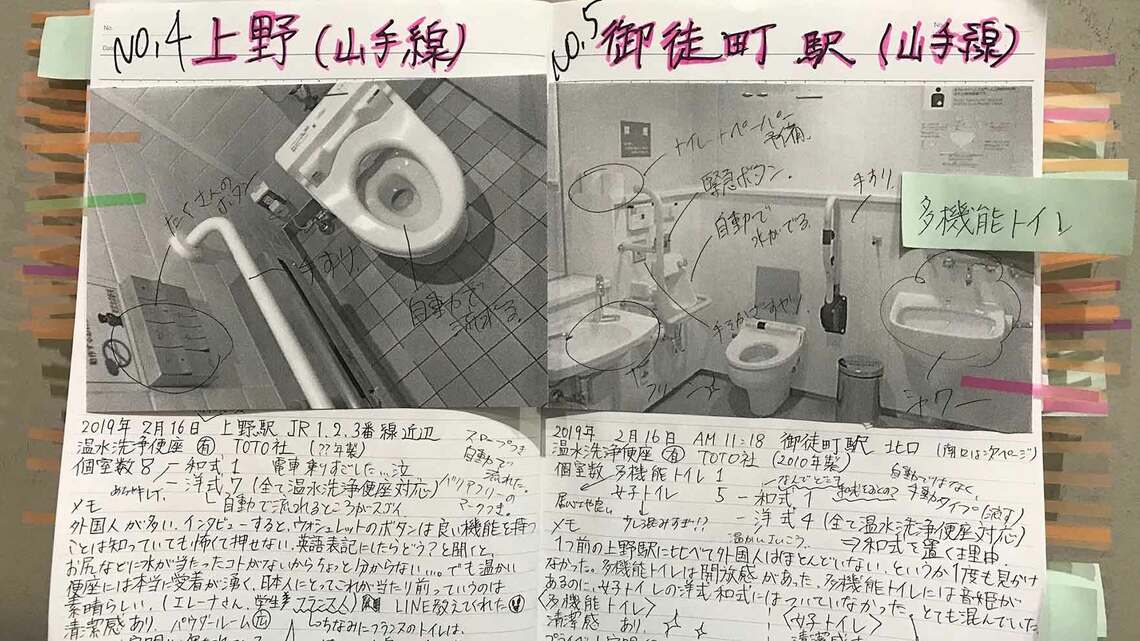 No.4 上野(山手線)
たくさんのボタン
手すり
自動で流れる。
2019年 2月16日 上野駅 JR1.2.3番線近辺
温水洗浄便座 有 TOTO社 (??年製)
個室数8 ─ 和式1 電車乗りすごした…泣
─ 洋式7 (全て温水洗浄便座対応)
自動で流れるところがスゴイ
スロープつき
自動で流れた。
バリアフリーのマークつき。
メモ
外国人が多い。インタビューすると、ウォシュレットのボタンは良い機能を持つ
ことは知っていても怖くて押せない。英語表記にしたらどう?と聞くと、
お尻などに水が当たったコトがないからちょっと分からない…。でも温かい
便座には本当に愛着が湧く、日本人にとってこれが当たり前っていうのは
素晴らしい。(エレーナさん、学生 フランス人) LINE教えてくれた
清潔感 あり パウダールーム 広
ちなみにフランスのトイレは、
No.5 御徒町駅(山手線)
トイレットペーパー予備。
緊急ボタン。
手すり。
自動で水がでる。
手をかざすやり
シャワー
多機能トイレ
2019年 2月16日 AM 11:18 御徒町駅 北口 (南口は次ページ)
温水洗浄便座 有 TOTO社 (2010年製)
個室数 多機能トイレ 1
女子トイレ 5 ─ 和式1
─ 洋式4 (全て温水洗浄便座対応)
自動ではなく、
手動タイプ(流す)
⇒和式を置く理由
メモ
1つ前の上野駅に比べて外国人はほとんどいない、というか1度も見かけ
なかった。多機能トイレは開放感があった。多機能トイレには音姫が
あるのに、女子トイレの洋式和式にはついていなかった。とても混んでいた
<多機能トイレ>
<女子トイレ>
清潔感 あり
清潔感